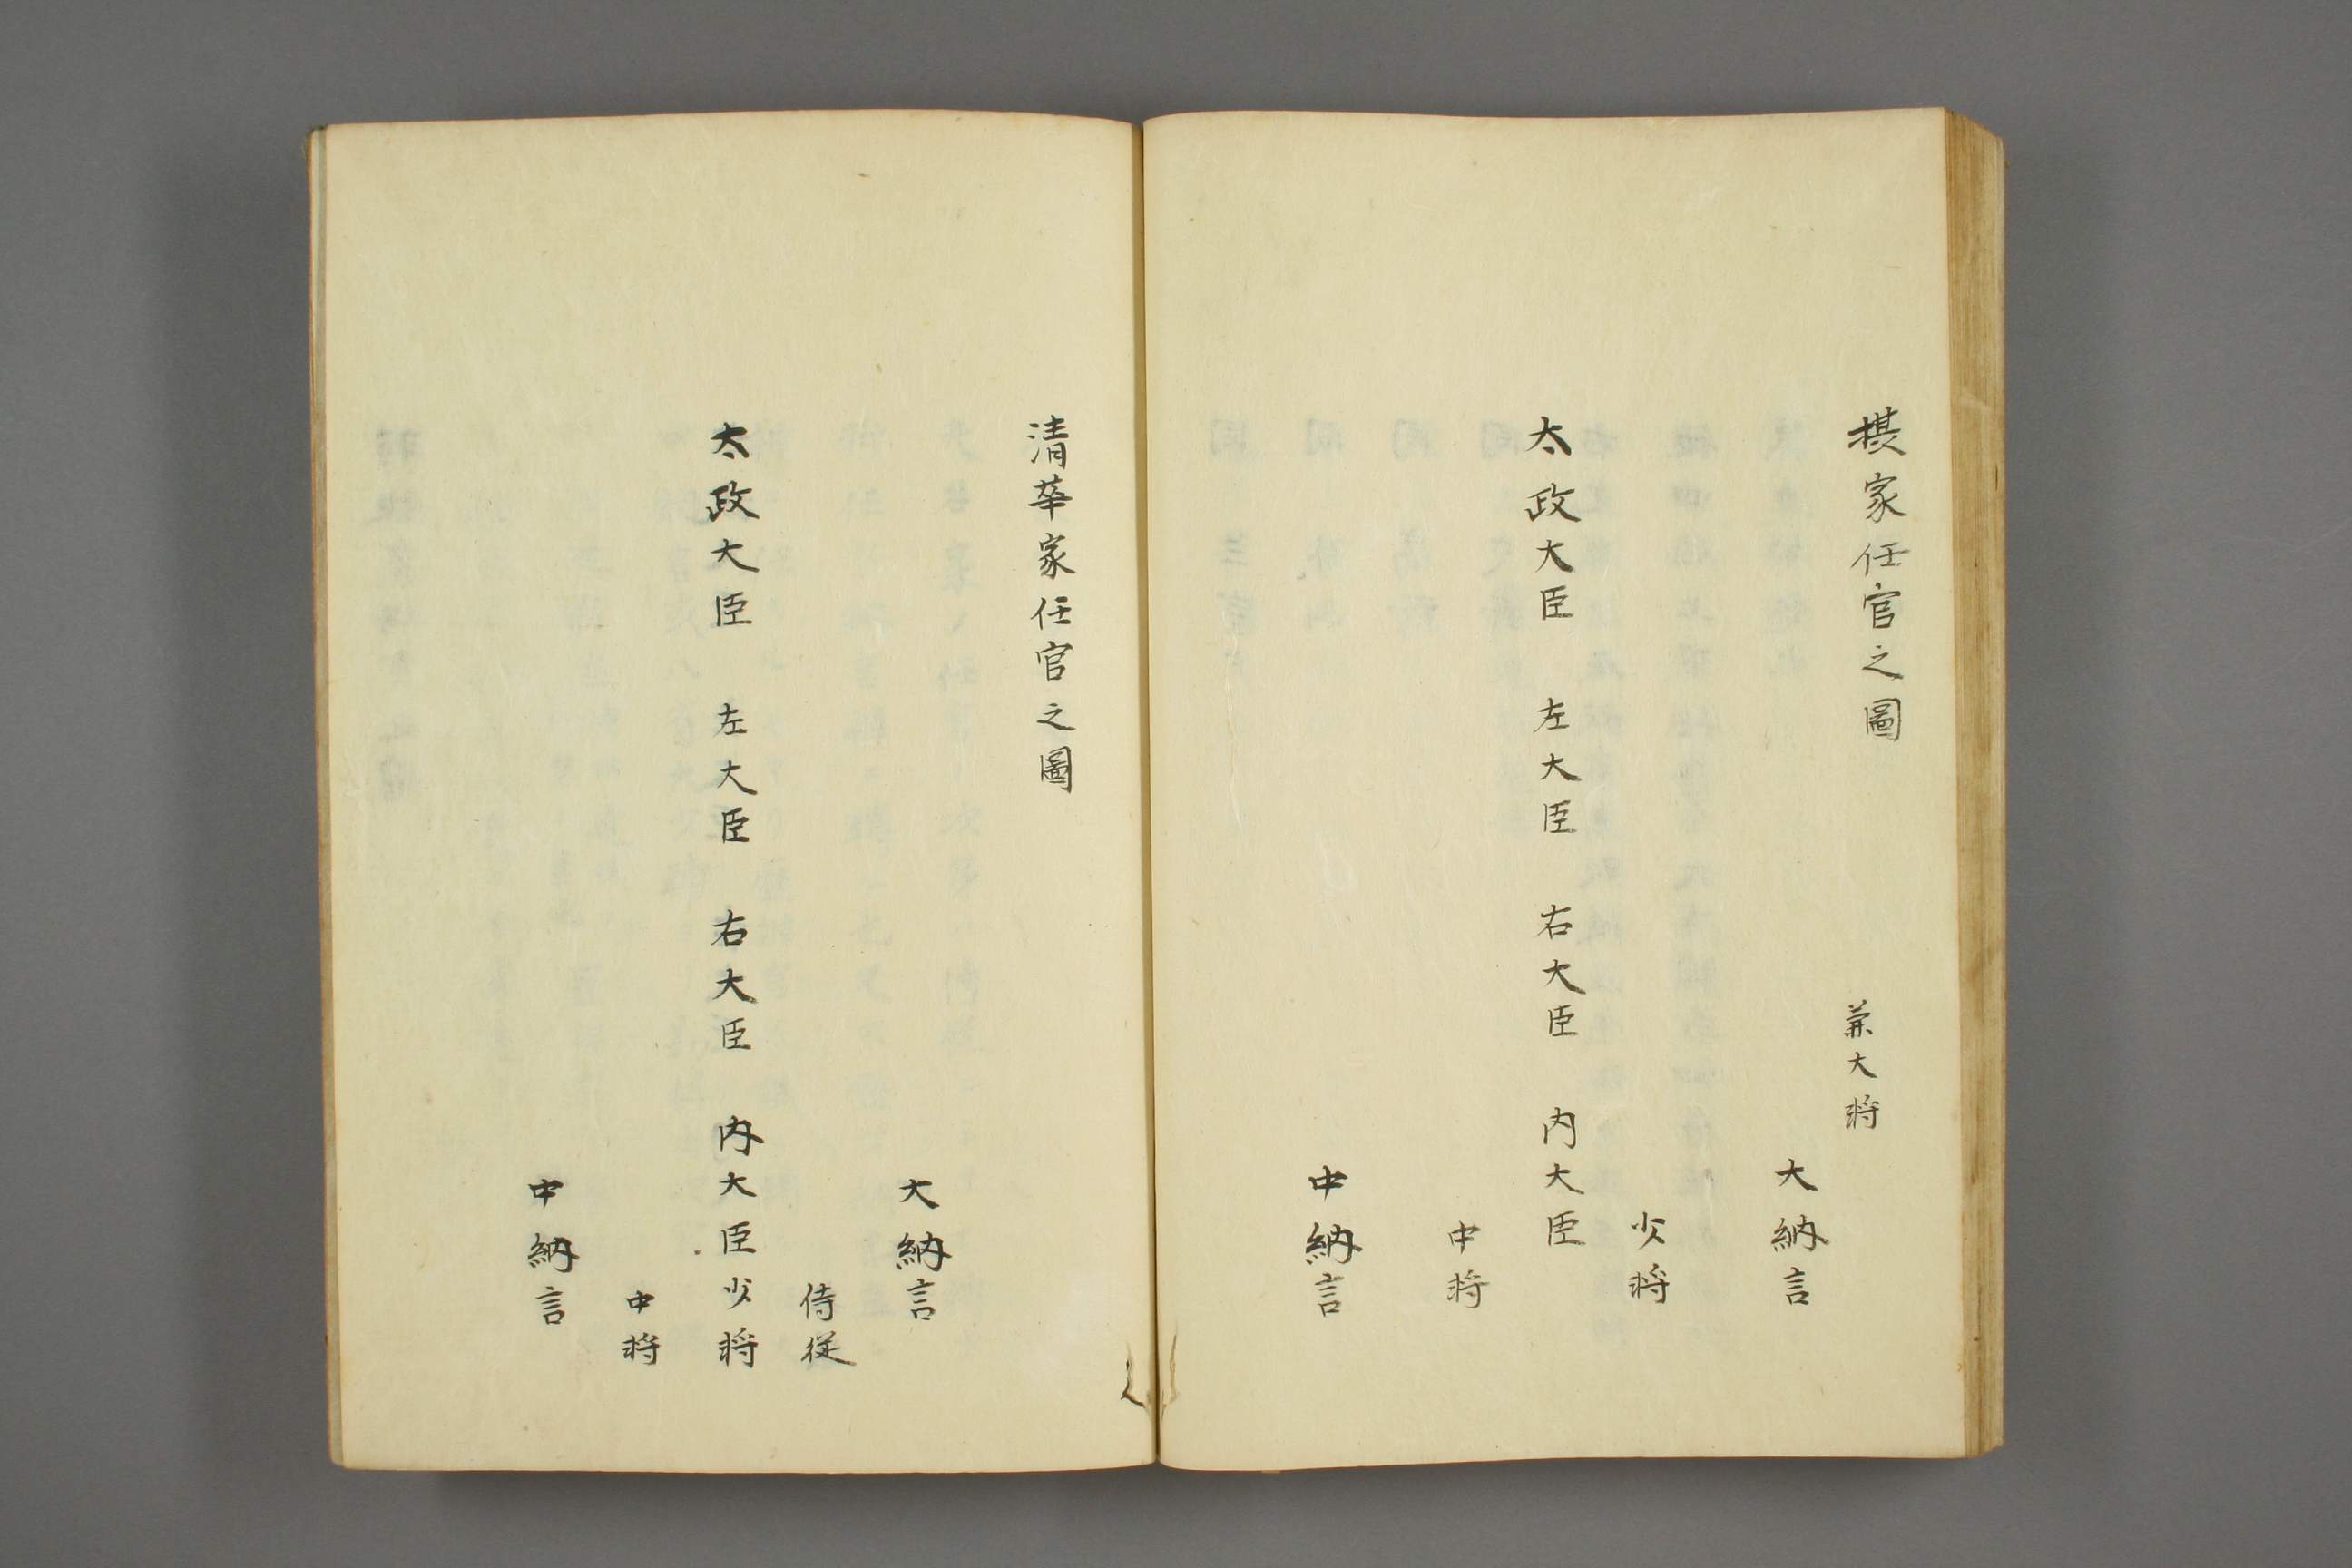 摂家任官之圖
兼大将
大納言
少将
太政大臣　左大臣　右大臣　内大臣
中将
中納言
清華家任官之圖
大納言
侍従
太政大臣　左大臣　右大臣　内大臣　少将
中将
中納言